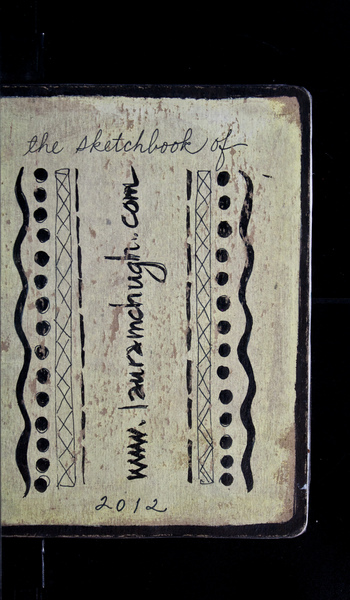 the sketchbook of
www.lauramchugh.com
2012